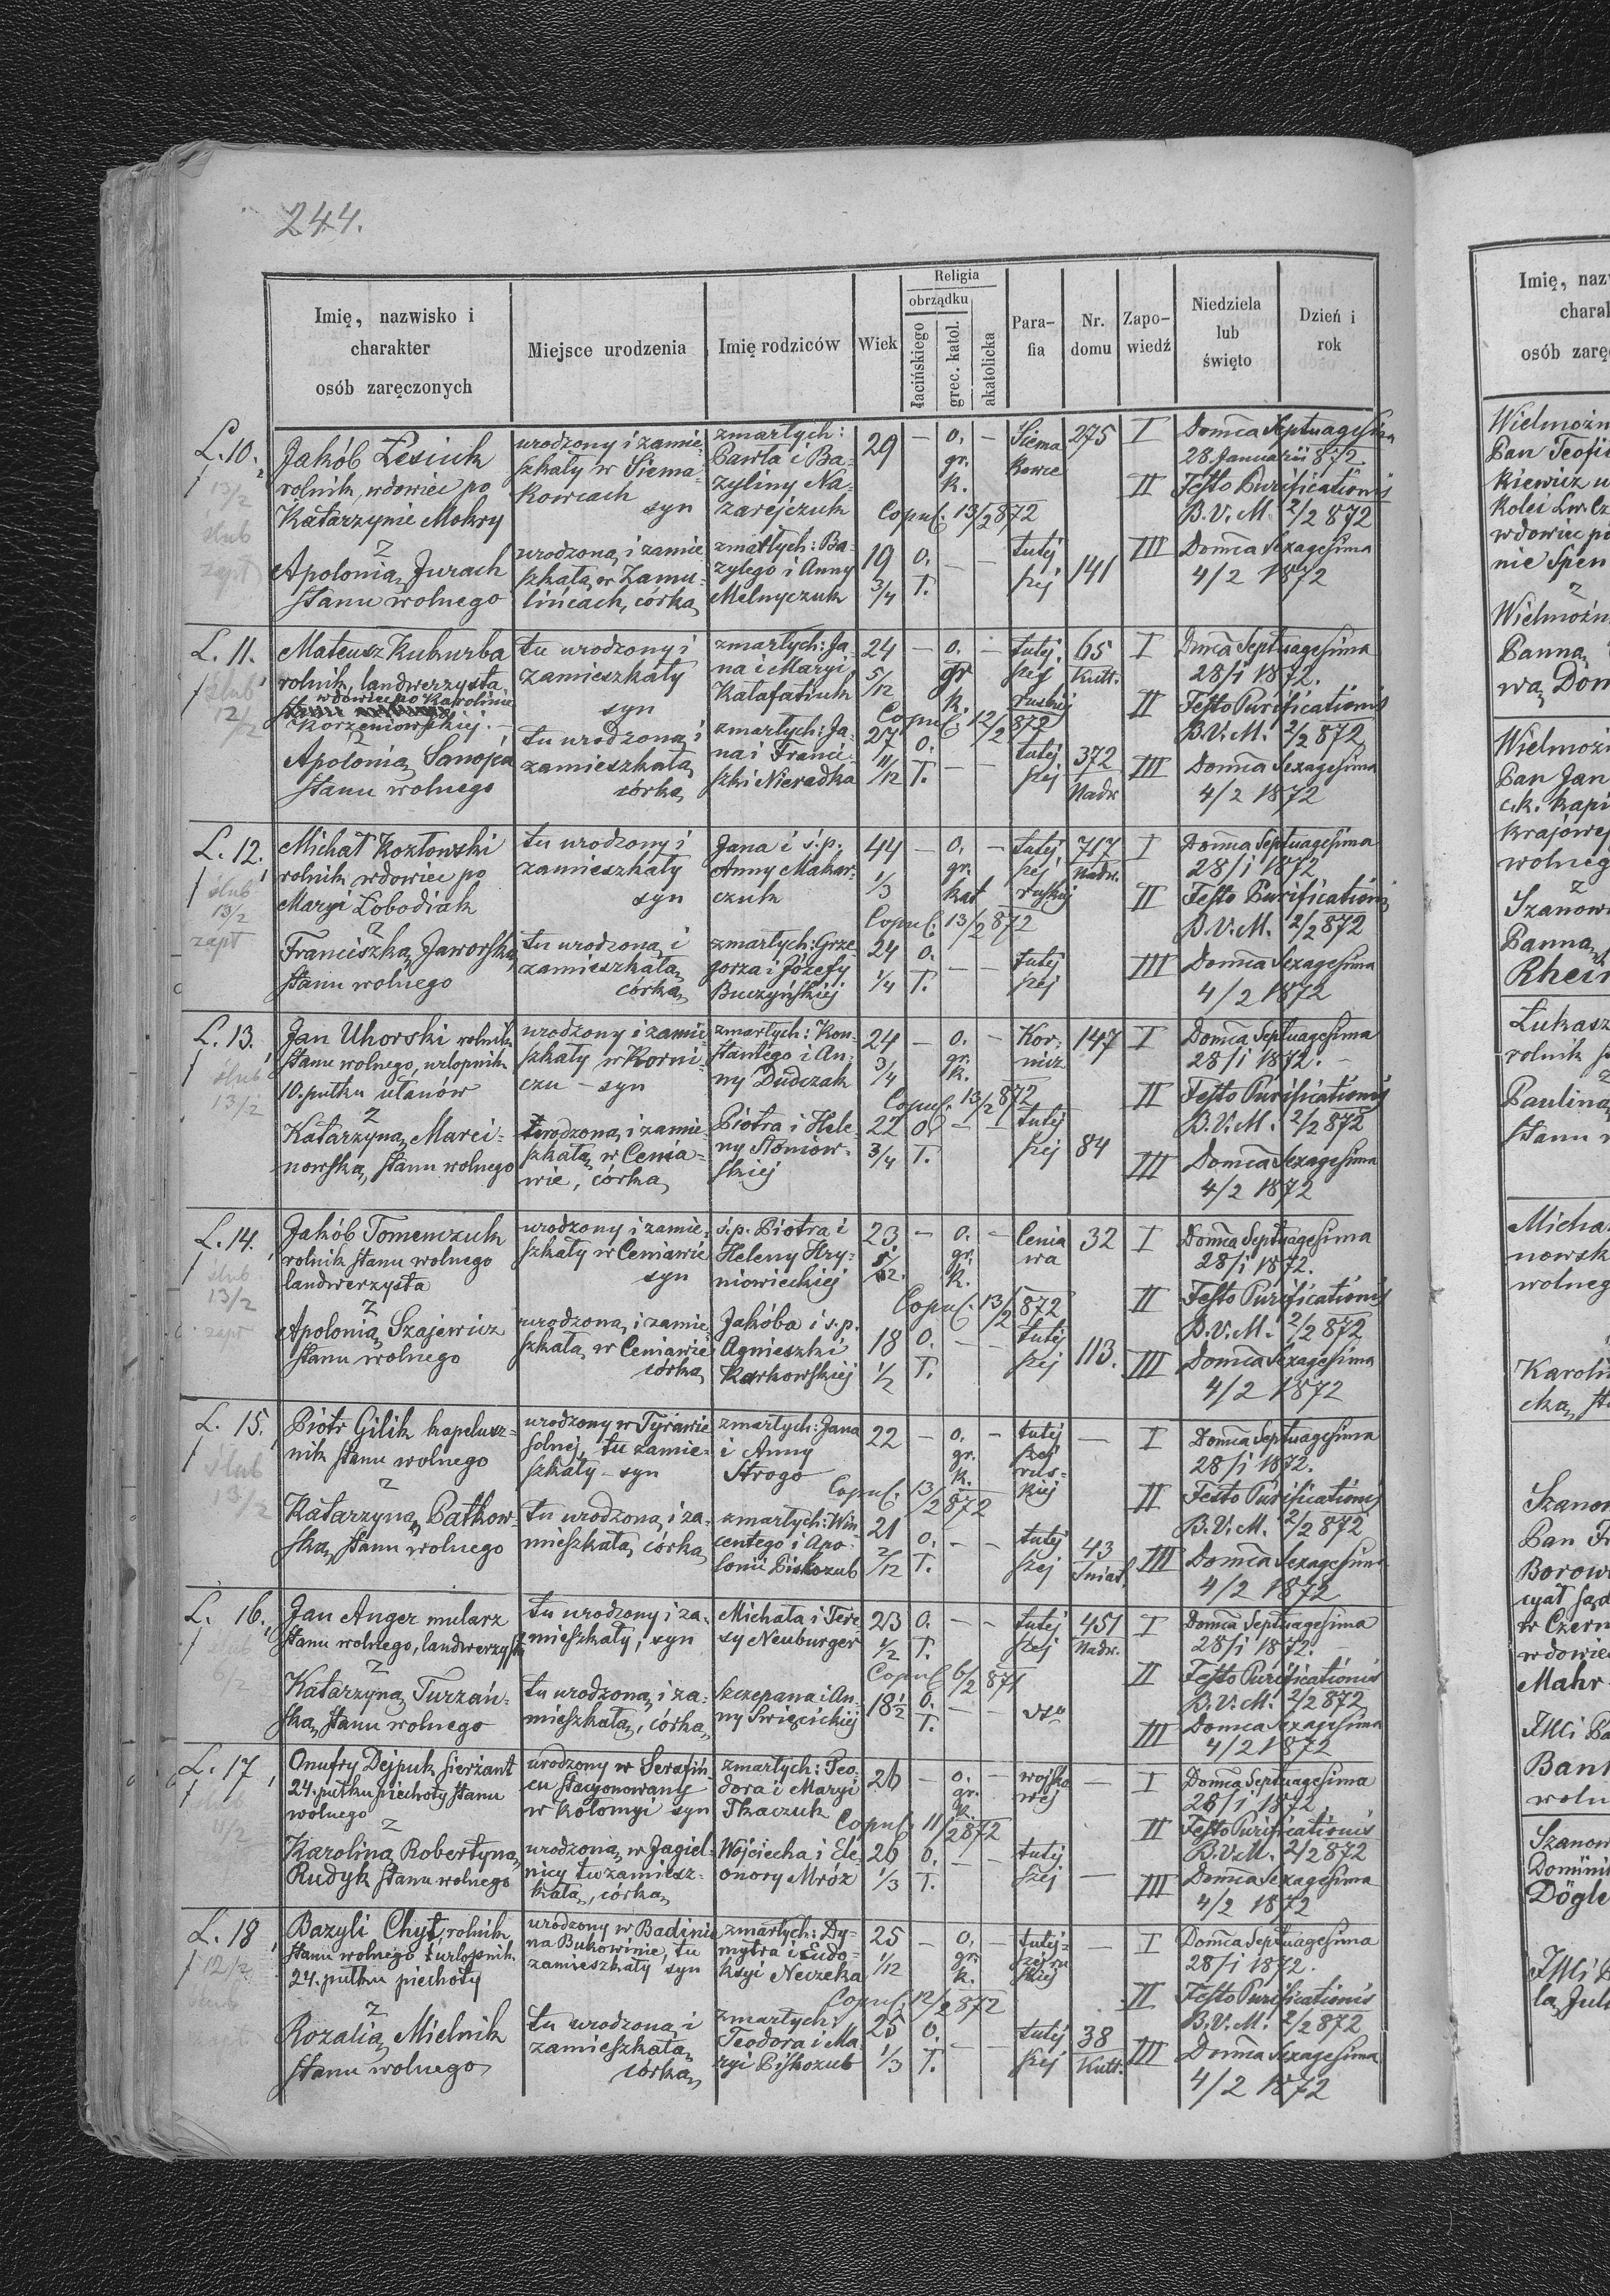 244.
Imię, nazwisko i
charakter
osób zaręczonych
Miejsce urodzenia
Imię rodziców
Wiek
Religia
obrządku
łacińskiego
grec. katol.
akatolicka
Para-
fia
Nr.
domu
Zapo-
wiedź
Niedziela
lub
święto
Dzień i
rok
L. 10.
13/2
ślub
zapł
Jakób Lesiuk
rolnik, wdowiec po
Katarzynie Mokry
z
Apolonią Jurach
stanu wolnego
urodzony i zamie-
szkały w Siema-
kowcach
syn
urodzoną i zamie
szkałą w Zamu-
lińcach, córką
zmarłych:
Pawła i Ba-
zyliny Na-
zarejczuk
zmarłych: Ba-
zylego i Anny
Melnyczuk
29 — o. gr. k. —
Copul. 13/2 872
19 3/4 o. ł. — —
Siema
kowce
275
tutej
szej
141
I Domca Septuagesima
28 Januarii 872
II Festo Purificationis
B. V. M. 2/2 872
III Domca Sexagesima
4/2 1872
L. 11.
ślub
12/2
Mateusz Kukurba
rolnik, landwerzysta
wdowiec po Karolinie
Korzeniowskiej.
z
Apolonią Sanojca
stanu wolnego
tu urodzony i
zamieszkały
syn
tu urodzoną i
zamieszkałą
córką
zmarłych: Ja-
na i Maryi
Kalafatiuk
zmarłych: Ja-
na i Franci-
szki Nieradka
24 5/12 — o. gr k. —
Copul. 12/2 872
27 11/12 o. ł. — —
tutej
szej
ruskiej
65
Kutt.
tutej
szej
372
Nadw.
I Domca Septuagesima
28/i 1872.
II Festo Purificationis
B. V. M. 2/2 872
III Domca Sexagesima
4/2 1872
L. 12.
ślub
13/2
zapł
Michał Kozłowski
rolnik wdowiec po
Maryi Łobodiak
z
Franciszką Jaworską
stanu wolnego
tu urodzony i
zamieszkały
syn
tu urodzoną i
zamieszkałą
córką
Jana i ś.p.
Anny Makar-
czuk
zmarłych: Grze
gorza i Józefy
Buczyńskiej
44 1/3 — o. gr. kat —
Copul. 13/2 872
24 1/4 o. ł. — —
tutej
szej
ruskiej
717
Nadw.
tutej
szej
I Domca Septuagesima
28/i 1872
II Festo Purificationis
B. V. M. 2/2 872
III Domca Sexagesima
4/2 1872
L. 13.
ślub
13/2
Jan Uhorski rolnik
stanu wolnego, urlopnik
10. pułku ułanów
z
Katarzyną Marci-
nowską, stanu wolnego
urodzony i zamie-
szkały w Korni-
czu — syn
urodzoną i zamie-
szkałą w Cenia-
wie, córką
zmarłych: Kon-
stantego i An-
ny Dudczak
Piotra i Hele-
ny Słoniow-
skiej
24 3/4 — o. gr. k. —
Copul. 13/2 872
22 3/4 o. ł. — —
Kor-
nicz
147
tutej
szej
84
I Domca Septuagesima
28/i 1872.
II Festo Purificationis
B. V. M. 2/2 872
III Domca Sexagesima
4/2 1872
L. 14.
ślub
13/2
zapł
Jakób Tomenczuk
rolnik stanu wolnego
landwerzysta
z
Apolonią Szajewicz
stanu wolnego
urodzony i zamie-
szkały w Ceniawie
syn
urodzoną i zamie-
szkałą w Ceniawie
córką
ś.p. Piotra i
Heleny Hry-
niowieckiej
Jakóba i ś.p.
Agnieszki
Karkowskiej
23 — o. gr. k. —
Copul. 13/2 872
18 1/2 o. ł. — —
Cenia
wa
32
tutej
szej
113.
I Domca Septuagesima
28/i 1872.
II Festo Purificationis
B. V. M. 2/2 872
III Domca Sexagesima
4/2 1872
L. 15.
ślub
13/2
Piotr Gilik kapelusz-
nik stanu wolnego
z
Katarzyną Patkow-
ską, stanu wolnego
urodzony w Tyrawie
solnej, tu zamie-
szkały — syn
tu urodzoną i za-
mieszkałą, córką
zmarłych: Jana
i Anny
Strogo
zmarłych: Win-
centego i Apo-
lonii Piskozub
22 — o. gr. k. —
Copul. 13/2 872
21 2/12 o. ł. — —
tutej
szej
rus-
kiej
—
tutej
szej
43
Śniat.
I Domca Septuagesima
28/i 1872.
II Festo Purificationis
B. V. M. 2/2 872
III Domca Sexagesima
4/2 1872
L. 16.
ślub
6/2
Jan Anger mularz
stanu wolnego, landwerzysta
z
Katarzyną Turzań-
ską, stanu wolnego
tu urodzony i za-
mieszkały, syn
tu urodzoną i za-
mieszkałą, córką
Michała i Tere
sy Neuburger
Szczepana i An-
ny Święcickiej
23 1/2 o. ł. — —
Copul 6/2 871
18 1/2 o. ł. — —
tutej
szej
451
Nadw.
I Domca Septuagesima
28/i 1872.
II Festo Purificationis
B. V. M. 2/2 872
III Domca Sexagesima
4/2 1872
L. 17
ślub
11/2
Onufry Dejpuk sierżant
24. pułku piechoty stanu
wolnego
z
Karoliną Robertyną
Rudyk stanu wolnego
urodzony w Serafiń
cu stacyonowany
w Kołomyi syn
urodzoną w Jagiel-
nicy tu zamiesz-
kałą, córką
zmarłych: Teo-
dora i Maryi
Tkaczuk
Wojciecha i Ele-
onory Mróz
26 — o. gr. k. —
Copul. 11/2 872
26 1/3 o. ł. — —
wojsko
wej
—
tutej
szej
—
I Domca Septuagesima
28/i 1872
II Festo Purificationis
B. V. M. 2/2 872
III Domca Sexagesima
4/2 1872
L. 18
12/2
ślub
Bazyli Chyt, rolnik
stanu wolnego i urlopnik
24. pułku piechoty
z
Rozalią Mielnik
stanu wolnego
urodzony w Badinie
na Bukowinie, tu
zamieszkały syn
tu urodzoną i
zamieszkałą
córką
zmarłych: Dy-
mytra i Eudo-
ksyi Neczeka
zmarłych:
Teodora i Ma-
ryi Piskozub
25 1/12 — o. gr. k. —
Copul. 12/2 872
25 1/3 o. ł. — —
tutej-
szej ru
skiej
—
tutej
szej
38
Kutt.
I Domca Septuagesima
28/i 1872.
II Festo Purificationis
B. V. M. 2/2 872
III Domca Sexagesima
4/2 1872
Imię, naz
charak
osób zarę
Wielmożn
Pan Teofil
kiewicz u
Kolei Lw. Cz
wdowiec po
nie Spen
z
Wielmożn
Panną
wą Dom
Wielmożn
Pan Jan
c.k. kapi
krajowej
wolneg
z
Szanow
Panną
Rhein
Łukasz
rolnik s
z
Pauliną
stanu w
Micha
nowsk
wolneg
Karoli
cką st
Szanow
Pan Fr
Borow
cyał sąd
w Czern
wdowie
Mahr
JMci Pa
Bank
woln
Szanow
Domini
Dögle
JMci P
lą Jul